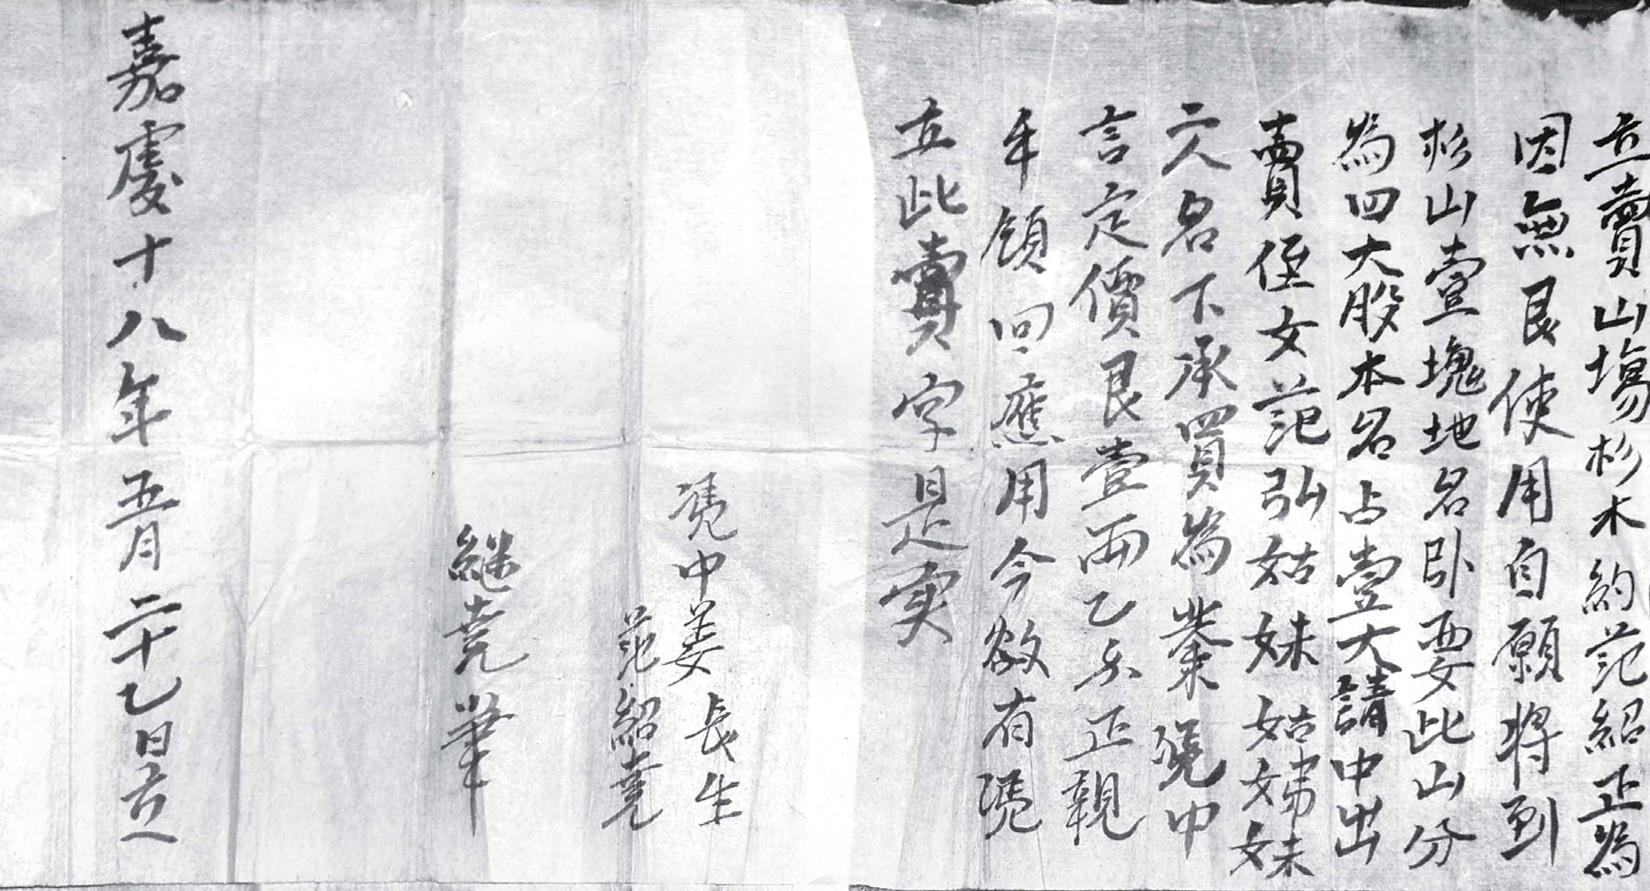 立賣山塲杉木約范紹正為
因無艮使用自願將到
杉山壹塊地名卧要此山分
為四大股本名占壹大請中出
賣侄女范弘姑妹姑娣妹
二人名下承買為業凴中
言定價艮壹両乙分正親
手領回應用今欲有凴
立此賣字是实
凴中姜長生
范紹堯
継堯筆
嘉慶十八年五月二十乙日立